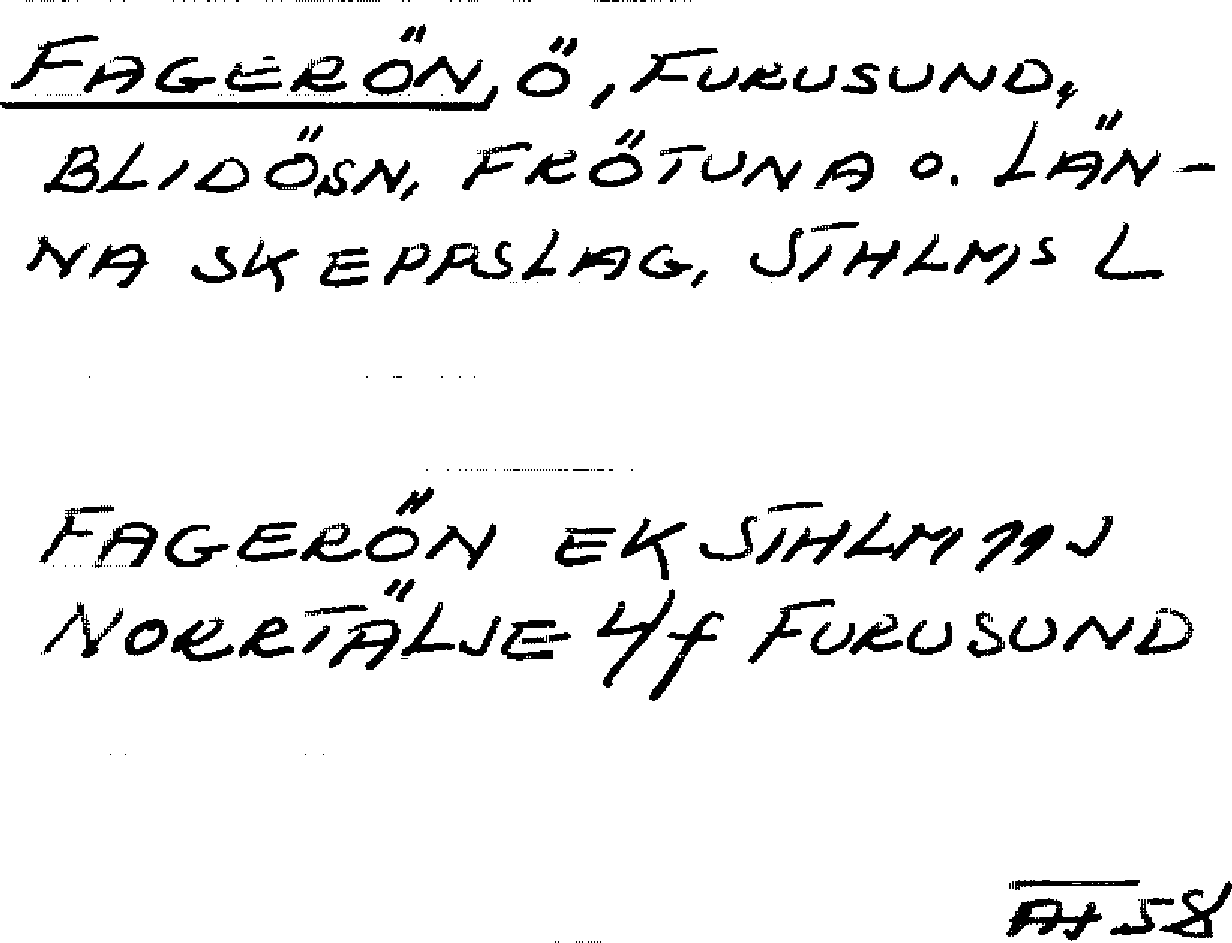 FAGERÖN, Ö, FURUSUND,
BLIDÖSN, FRÖTUNA O. LÄN-
NA SKEPPSLAG, STHLMS L
FAGERÖN EK STHLM 11 J
NORRTÄLJE 4/f FURUSUND
58